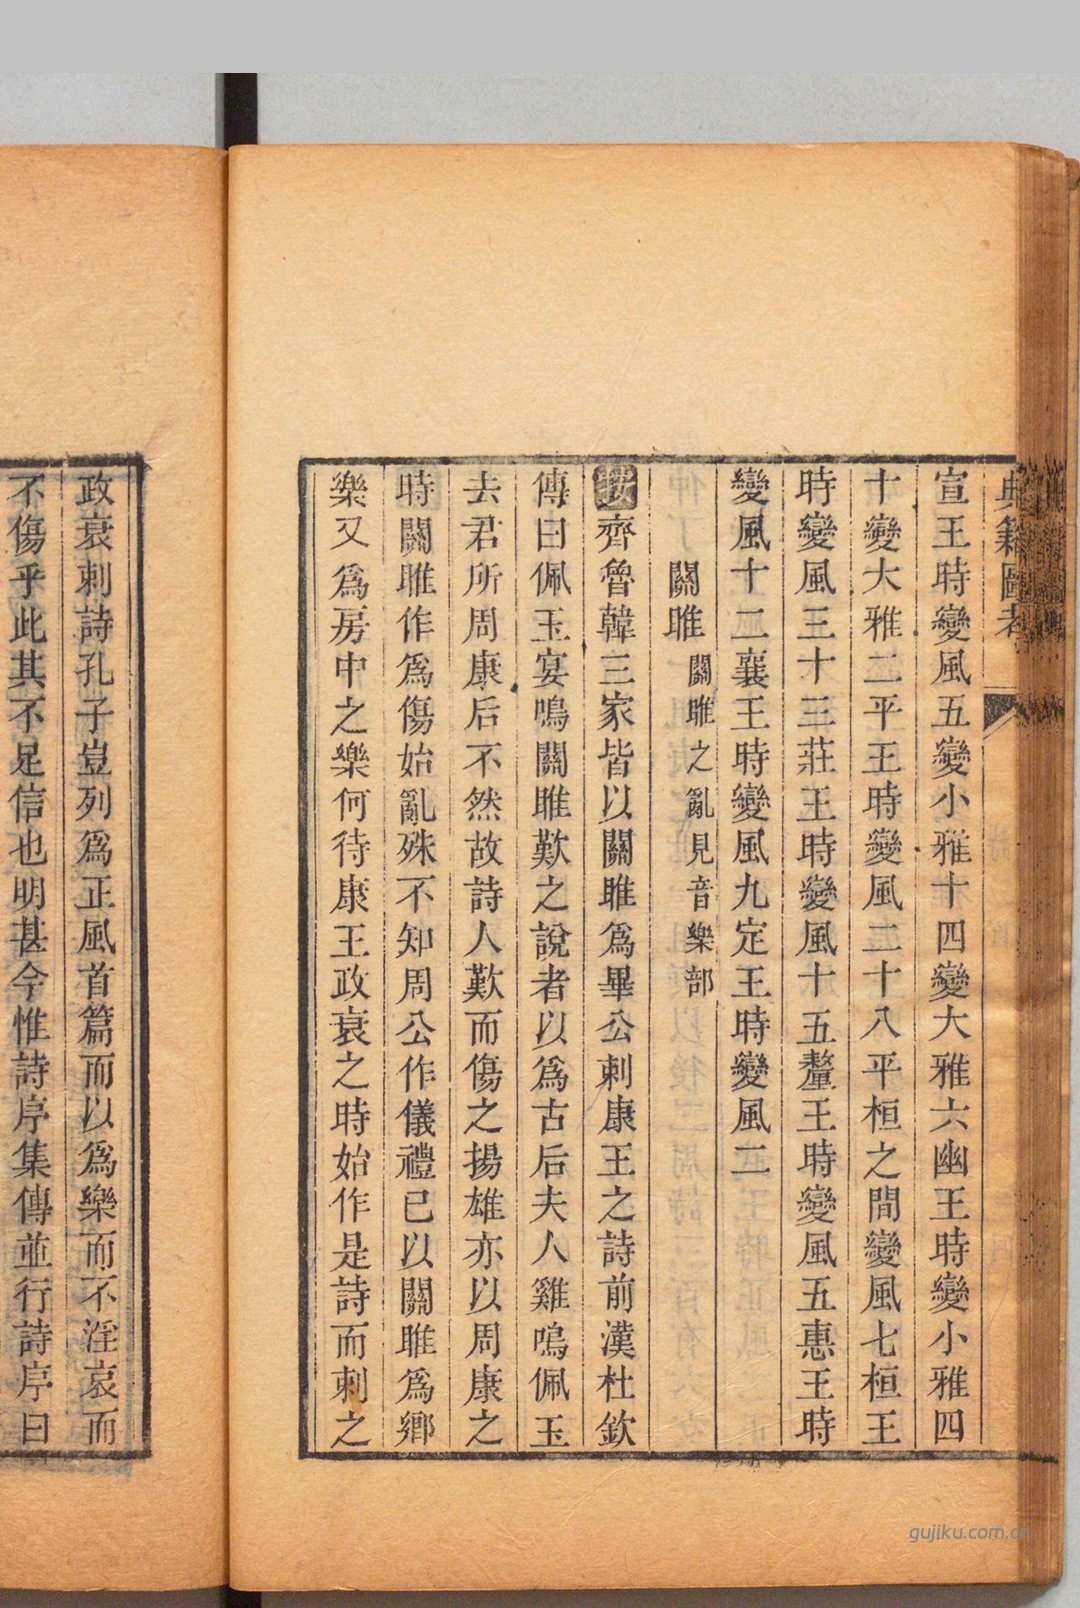 典籍圖考
宣王時變風五變小雅十四變大雅六幽王時變小雅四
十變大雅二平王時變風二十八平桓之間變風七桓王
時變風三十三莊王時變風十五釐王時變風五惠王時
變風十二襄王時變風九定王時變風二
關雎 關雎之亂見音樂部
按齊魯韓三家皆以關雎爲畢公刺康王之詩前漢杜欽
傳曰佩玉宴鳴關雎歎之說者以爲古后夫人雞鳴佩玉
去君所周康后不然故詩人歎而傷之揚雄亦以周康之
時關雎作爲傷始亂殊不知周公作儀禮已以關雎爲鄉
樂又爲房中之樂何待康王政衰之時始作是詩而刺之
政衰刺詩孔子豈列爲正風首篇而以爲樂而不淫哀而
不傷乎此其不足信也明甚今惟詩序集傳並行詩序曰
gujiku.com.cn